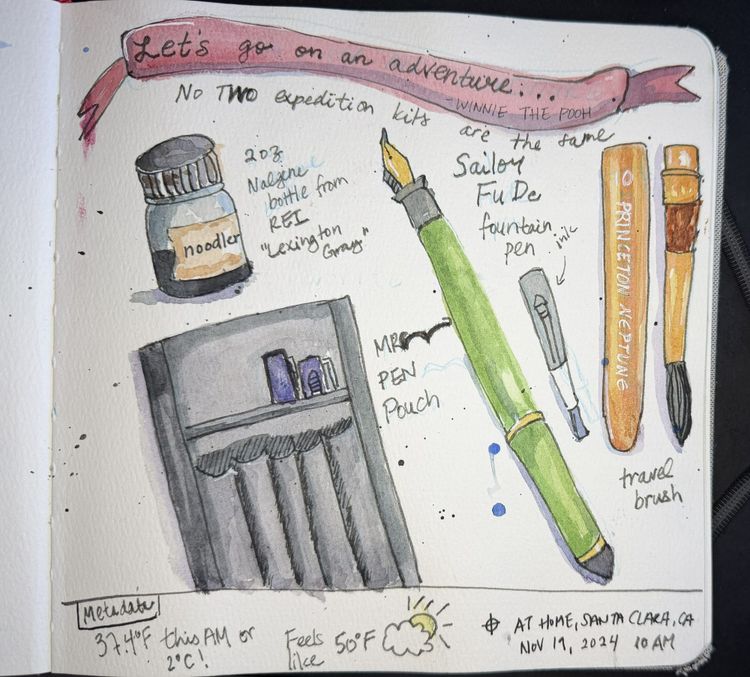 Let's go on an adventure...
- WINNIE THE POOH
No TWO expedition kits are the same
2oz
Nalgene
bottle from
REI
"Lexington
Gray"
noodler
Sailor
FuDe
fountain
pen
ink
10 PRINCETON NEPTUNE
MR
PEN
Pouch
travel
brush
Metadata
37.4°F this AM or
2°C!
Feels
like
50°F
AT HOME, SANTA CLARA, CA
NOV 19, 2024 10 AM